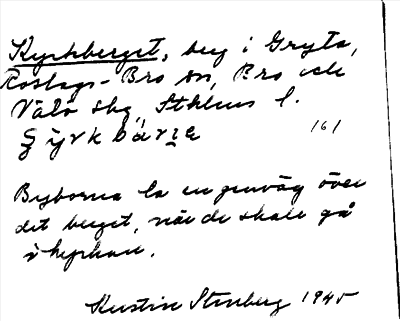 Kyrkberget, berg i Gryta,
Roslags-Bro sn, Bro och
VäLö skg, Sthlms l.
161
Byborna ta en genväg över
det berget, när de skall gå
i kyrkan.
Kerstin Stenberg 1945